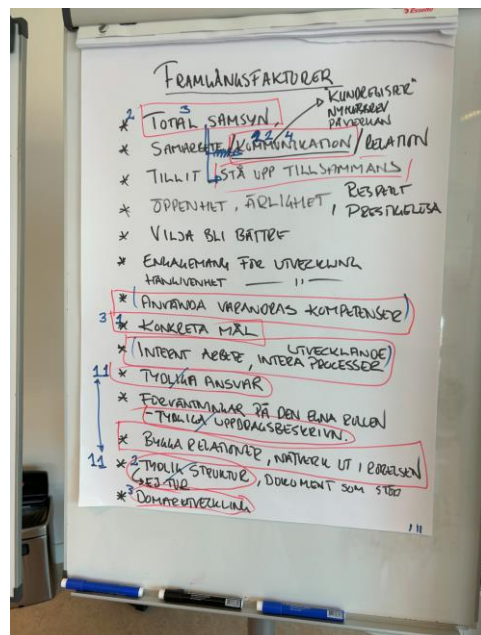 FRAMGÅNGSFAKTORER
* 2 TOTAL 3 SAMSYN
"KUNDRELISER"
NYHETSBREV
PÅVERKAN
* SAMARBETE / KOMMUNIKATION / RELATION
2 2 4
* TILLIT STÅ UPP TILLSAMMANS
* ÖPPENHET, ÄRLIGHET, RESPEKT
PRESTIGELÖSA
* VILJA BLI BÄTTRE
* ENGAGEMANG FÖR UTVECKLING
HÄNGIVENHET — " —
* (ANVÄNDA VARANDRAS KOMPETENSER)
3 1 * KONKRETA MÅL
* (INTERNT ARBETE, UTVECKLANDE)
INTERA PROCESSER
11 * TYDLIGA ANSVAR
* FÖRVÄNTNINGAR PÅ DEN EGNA ROLLEN
- TYDLIGA UPPDRAGSBESKRIVN.
* BYGGA RELATIONER, NÄTVERK UT I RÖRELSEN
11 * 2 TYDLIK STRUKTUR, DOKUMENT SOM STÖD
EJ TUR
* 3 DOMARUTVECKLING
Esselte